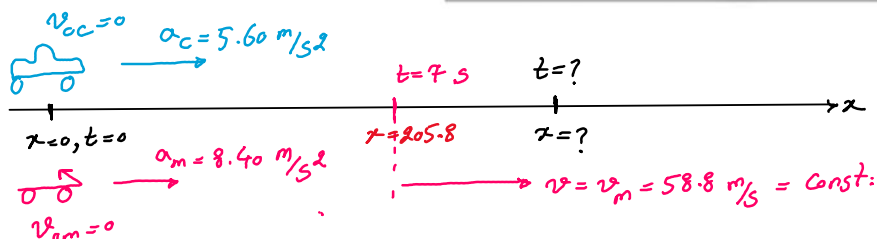 v₀c = 0
a_c = 5.60 m/s2
t = 7 s
t = ?
x
x=0, t=0
x = 205.8
x = ?
a_m = 8.40 m/s2
v = v_m = 58.8 m/s = const.
v₀m = 0